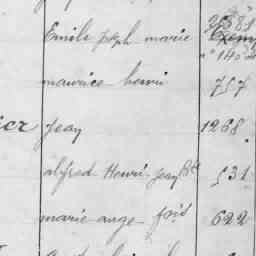 Emile jph marie
maurice henri 757
ier Jean 1268
alfred Henri Jean Bte 531
marie ange fois 622